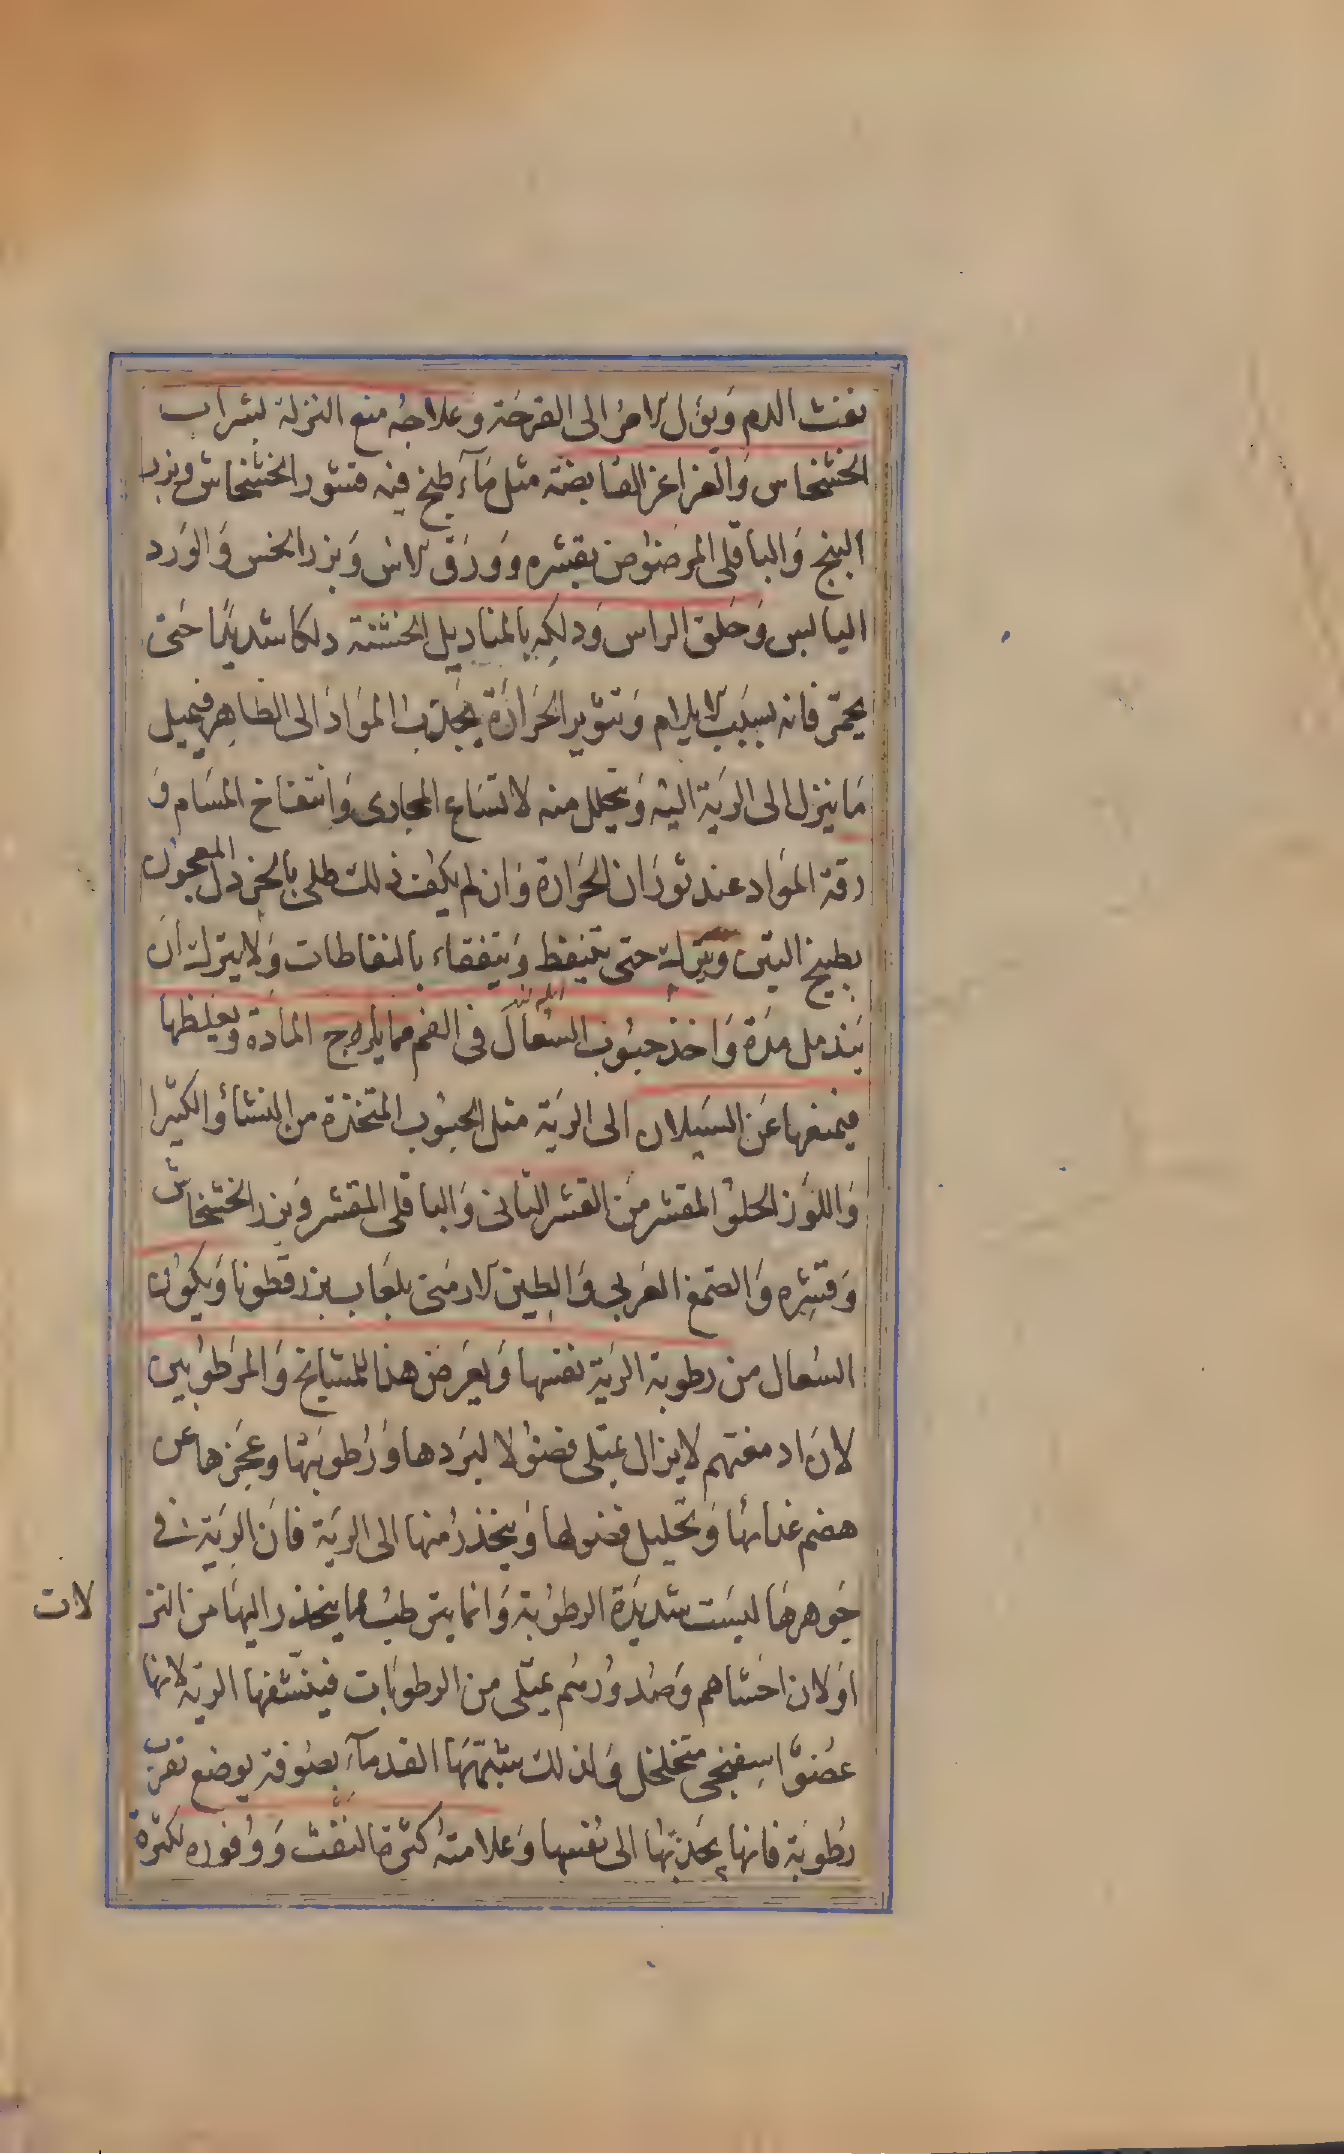 نفث الدم ويؤل الامر الى القرحة وعلاجه منع النزلة بشراب
الخشخاس والغراغر القابضة مثل مآء طبخ فيه قشور الخشخاش وبزر
البنج والباقلى المرضوض بقشره وورق الاس وبزر الخس والورد
اليابس وحلق الراس ودلكه بالمناديل الخشنة دلكا شديدا حتى
يحمر فانه بسبب الايلام وتثوير الحرارة يجذب المواد الى الظاهر فيميل
ما ينزل الى الرية اليه ويتحلل منه لاتساع المجارى وانتفاخ المسام و
رقة المواد عند ثوران الحرارة وان لم يكف ذلك طلى بالخردل المعجون
بطبيخ التين ويترك حتى يتنفط ويتفقاء بالنفاطات ولا يترك ان
يندمل مدة واخذ حبوب السعال فى الفم مما يلزج المادة ويغلظها
فيمنعها عن السيلان الى الرية مثل الحبوب المتخذة من النشأ والكثيرا
واللوز الحلو المقشر من القشر الثانى والباقلى المقشر وبزر الخشخاش
وقشره والصمغ العربى والطين الارمنى بلعاب بزر قطونا ويكون
السعال من رطوبة الرية نفسها ويعرض هذا للمشايخ والمرطوبين
لان ادمغتهم لا يزال يمتلى فضولا لبردها ورطوبتها وعجزها عن
هضم غذائها وتحليل فضولها وينحدر منها الى الرية فان الرية فى
جوهرها ليست شديدة الرطوبة وانما يترطب مما ينحدر اليها من النز
لات
او لان احشاهم وصدورهم يمتلى من الرطوبات فينشفها الرية لانها
عضو اسفنجى متخلخل ولذلك شبهها القدمآء بصوفة يوضع بقرب
رطوبة فانها يجذبها الى نفسها وعلامته كثرة النفث ووفوره لكثرة